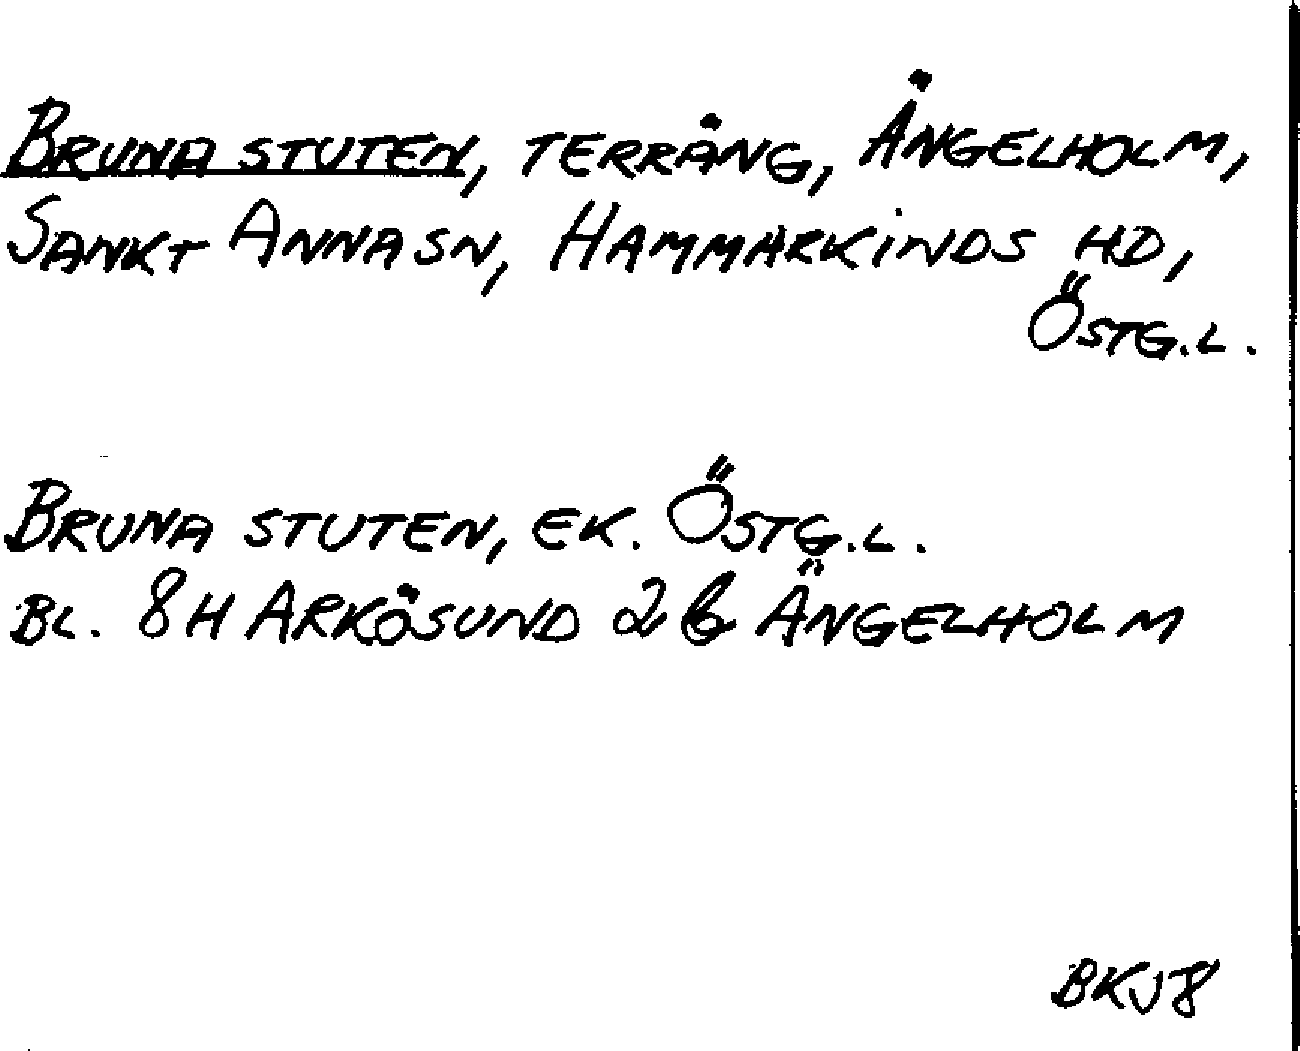 BRUNA STUTEN, TERRÄNG, ÄNGELHOLM,
SANKT ANNA SN, HAMMARKINDS HD,
ÖSTG.L.
BRUNA STUTEN, EK. ÖSTG.L.
BL. 8H ARKÖSUND 2b ÄNGELHOLM
BKJ78